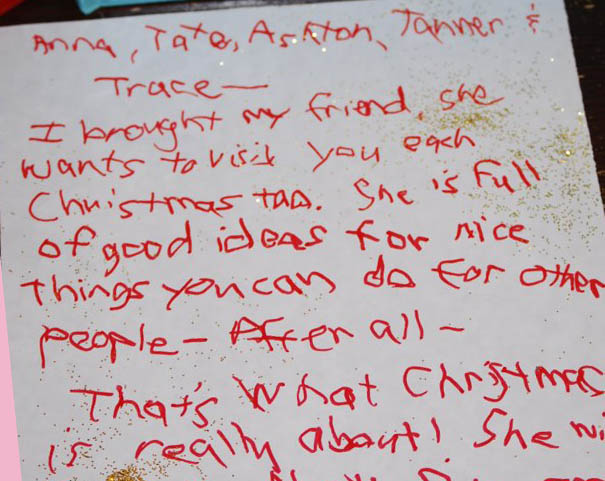 Anna, Tate, Ashton, Tanner &
Trace—
I brought my friend, she
wants to visit you each
Christmas too. She is full
of good ideas for nice
things you can do for other
people— After all—
That's what Christmas
is really about! She wi